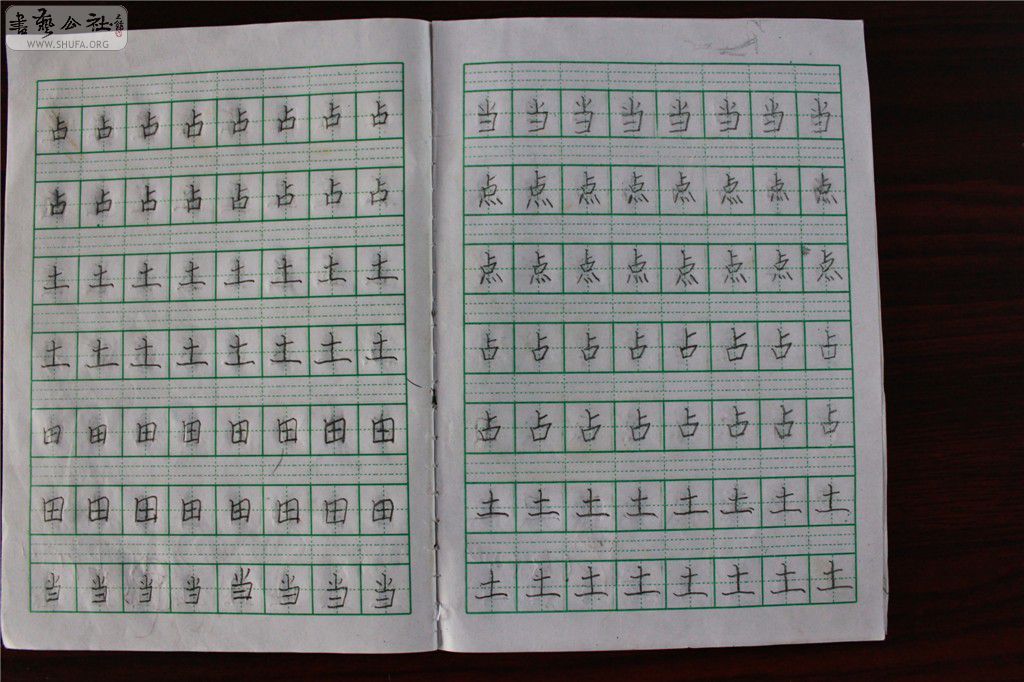 書藝公社
WWW.SHUFA.ORG
占占占占占占占占
占占占占占占占占
土土土土土土土土
土土土土土土土土
田田田田田田田田
田田田田田田田田
当当当当当当当当
当当当当当当当当
点点点点点点点点
点点点点点点点点
占占占占占占占占
占占占占占占占占
土土土土土土土土
土土土土土土土土